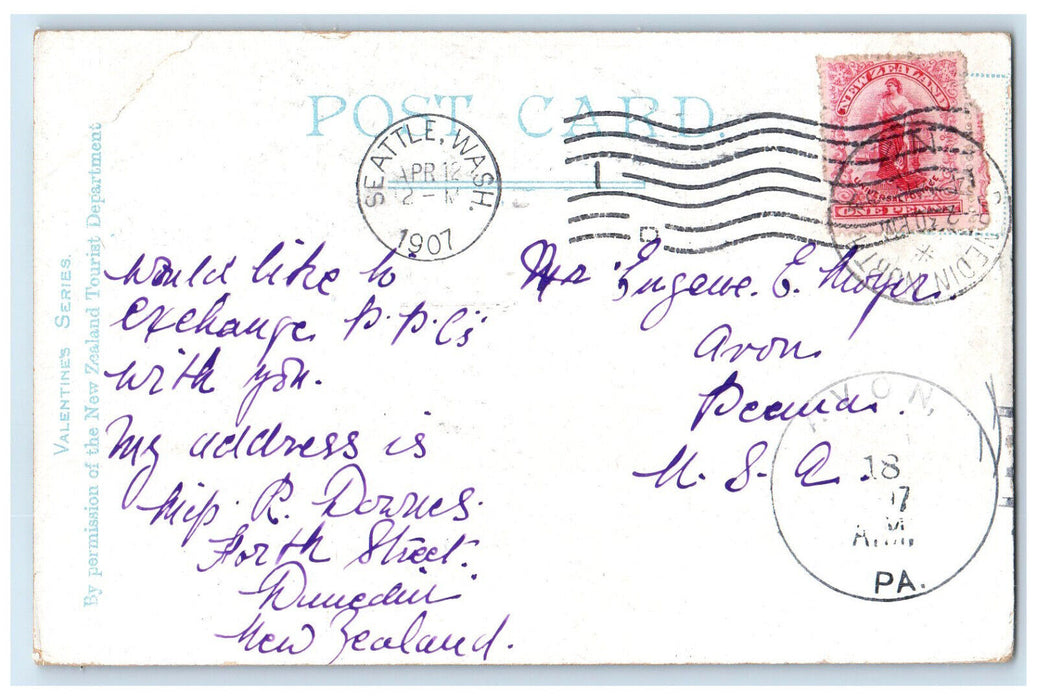 POST CARD.
VALENTINE'S SERIES.
By permission of the New Zealand Tourist Department
SEATTLE, WASH.
APR 12
2 - M
1907
1
D
NEW ZEALAND
ONE PENNY
would like to
exchange P.P.C's
with you.
My address is
Miss R. Downes.
Forth Street.
Dunedin
New Zealand.
Mr Eugene. E. Moyer.
Avon
Penna.
U. S. A.
AVON,
18
07
A.M.
PA.